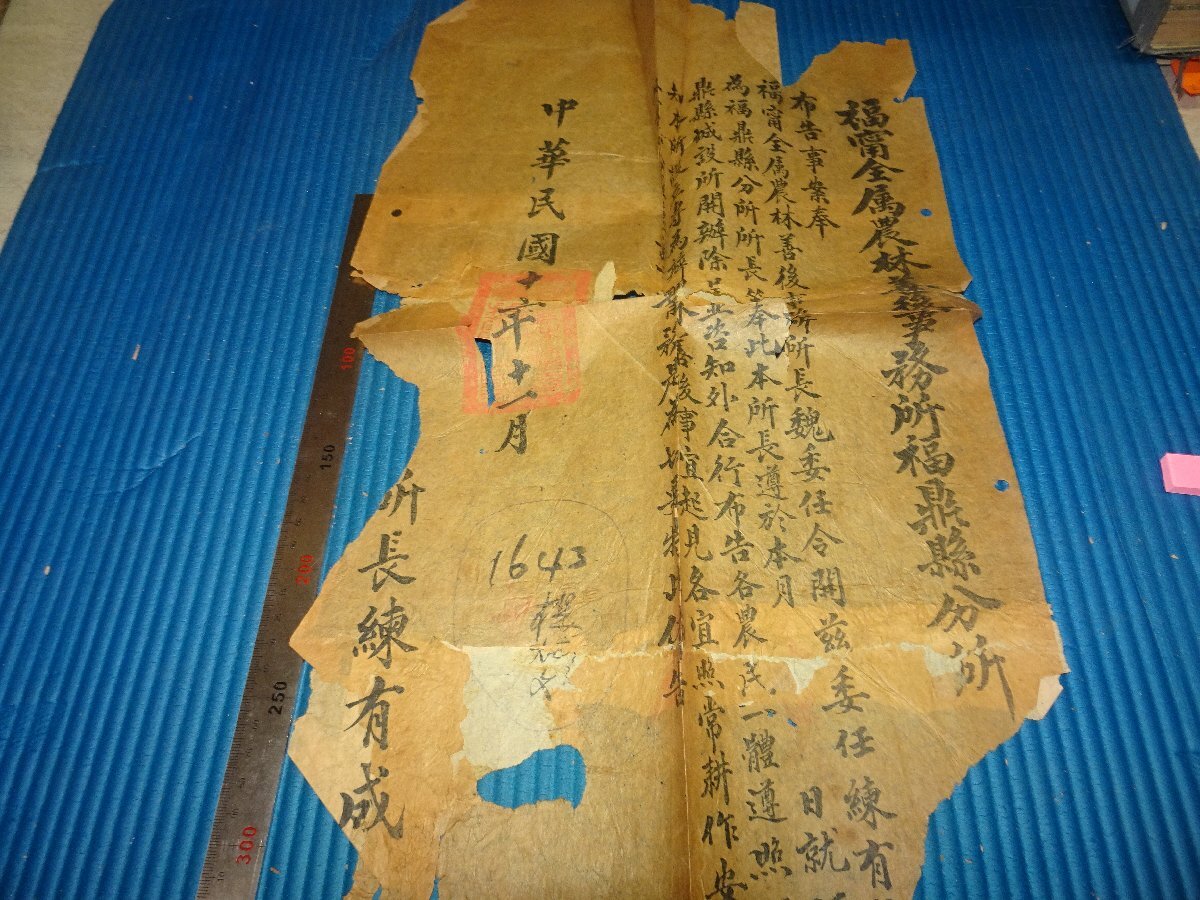 福甯全属農林善後事務所福鼎縣分所
布告事案奉
福甯全属農林善後事務所所長魏委任令開茲委任練有
為福鼎縣分所所長等奉此本所長遵於本月 日就
鼎縣城設所開辦除呈並咨知外合行布告各農民一體遵照
本所 農林善後事宜起見各宜照常耕作安
特此佈告
中華民國十六年十一月
所長練有成
1643
100
150
200
250
300